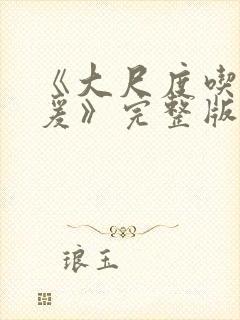 《大尺度喫
爱》完整版
琅玉